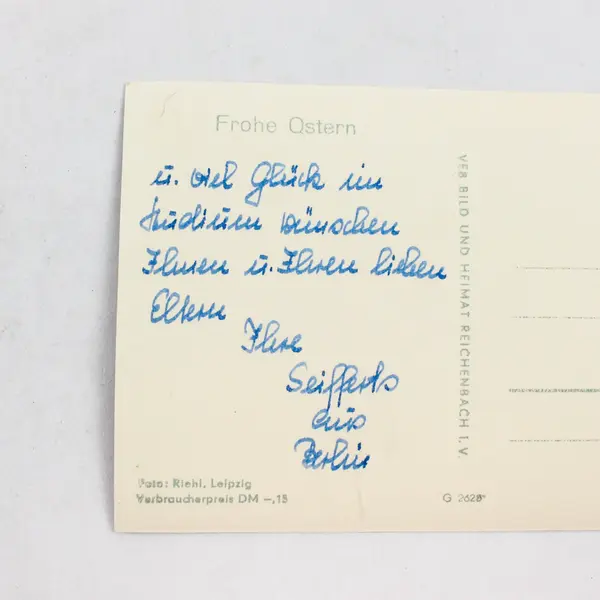 Frohe Ostern
u. viel Glück im
Studium wünschen
Ihnen u. Ihren lieben
Eltern
Ihre
Seifferts
aus
Berlin
VEB BILD UND HEIMAT REICHENBACH I. V.
Foto: Riehl, Leipzig
Verbraucherpreis DM –,15
G 2628